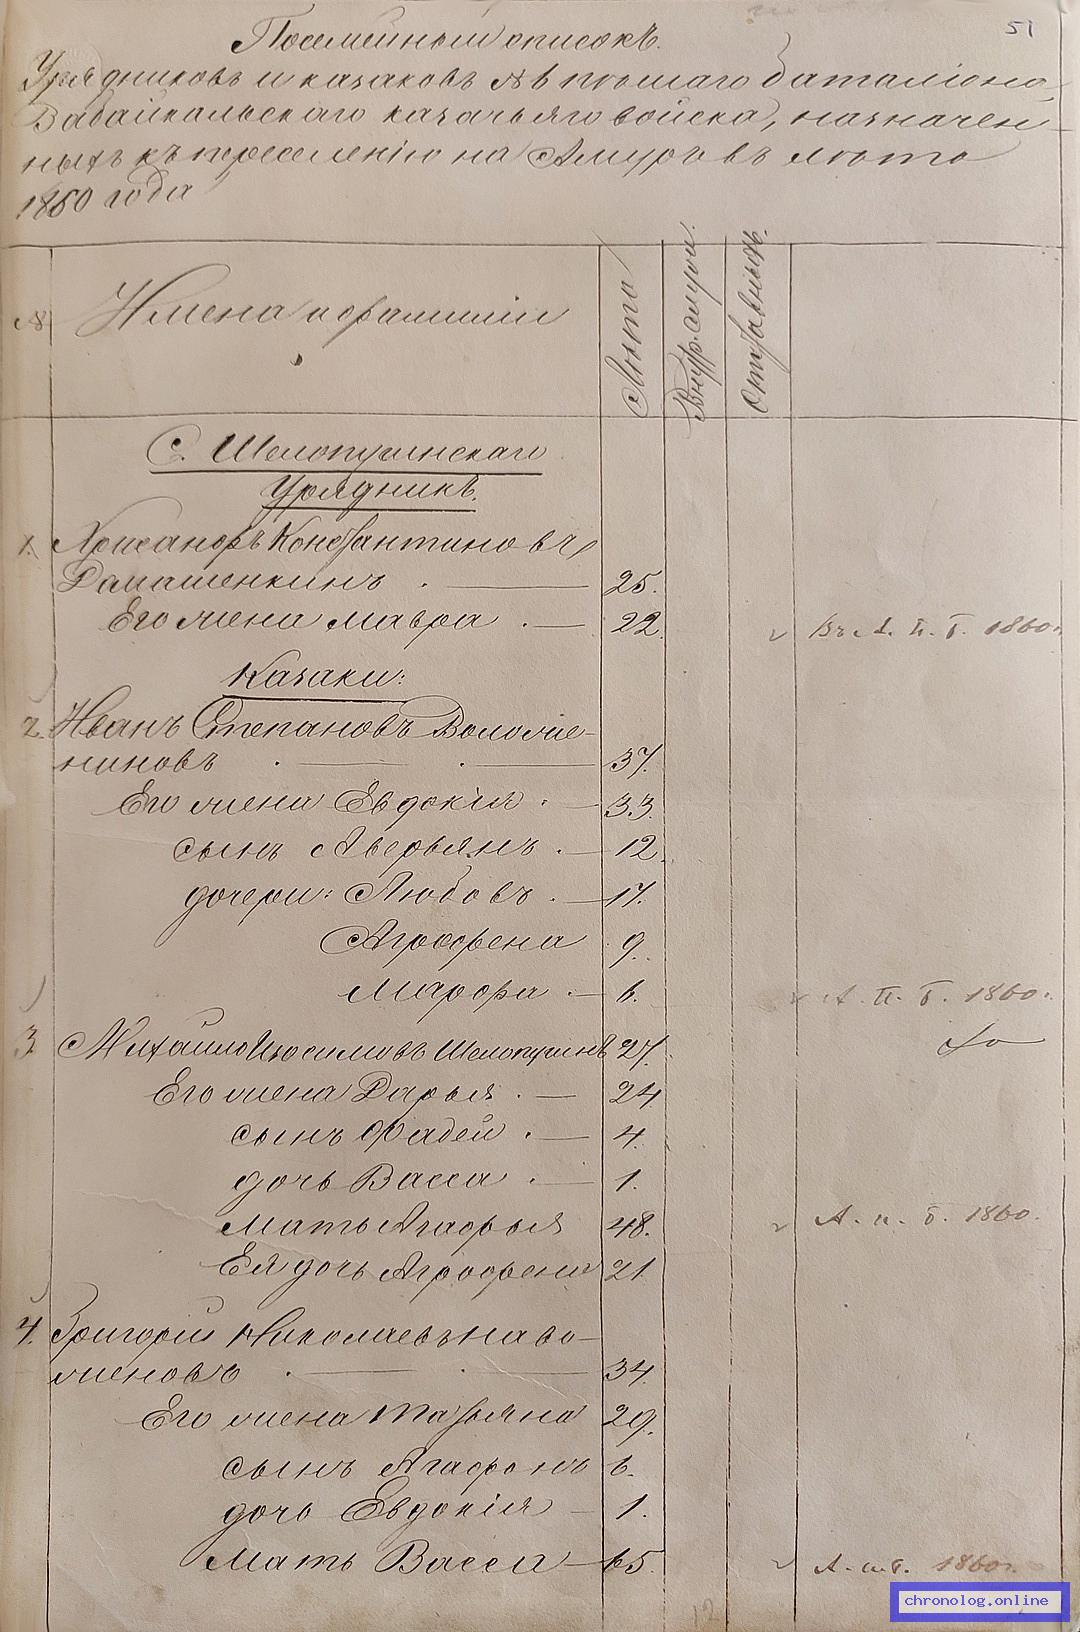 51
Посемейный списокъ.
Урядниковъ и казаковъ № 6 пѣшаго баталіона
Забайкальскаго казачьяго войска, назначен-
ныхъ къ переселенію на Амуръ въ лѣто
1860 года
№ Имена и фамиліи Лѣта
С. Шелопугинскаго
Урядникъ.
1. Хрисанфъ Константиновъ
Дамашенкинъ . — 25.
Его жена Мавра . — 22. Въ А. п. б. 1860
Казаки:
2. Иванъ Степановъ
ниновъ . — . — 37.
Его жена Евдокія . — 33.
сынъ Аверьянъ . — 12.
дочери: Любовь . — 17.
Агрофена 9.
Марфа . — 6. А. п. б. 1860.
3 Михайло Изосимовъ Шелопугинъ 27.
Его жена Дарья . — 24
сынъ Фадей . — 4.
дочь Васса . — 1.
Мать Агафья 48. А. п. б. 1860.
Ея дочь Агрофена 21
4. Григорій Николаевъ Наво-
жено въ . — . — 34.
Его жена Татьяна 29.
сынъ Агафонъ 6.
дочь Евдокія — 1.
Мать Васса — 65. А. п. б. 1860.
chronolog.online